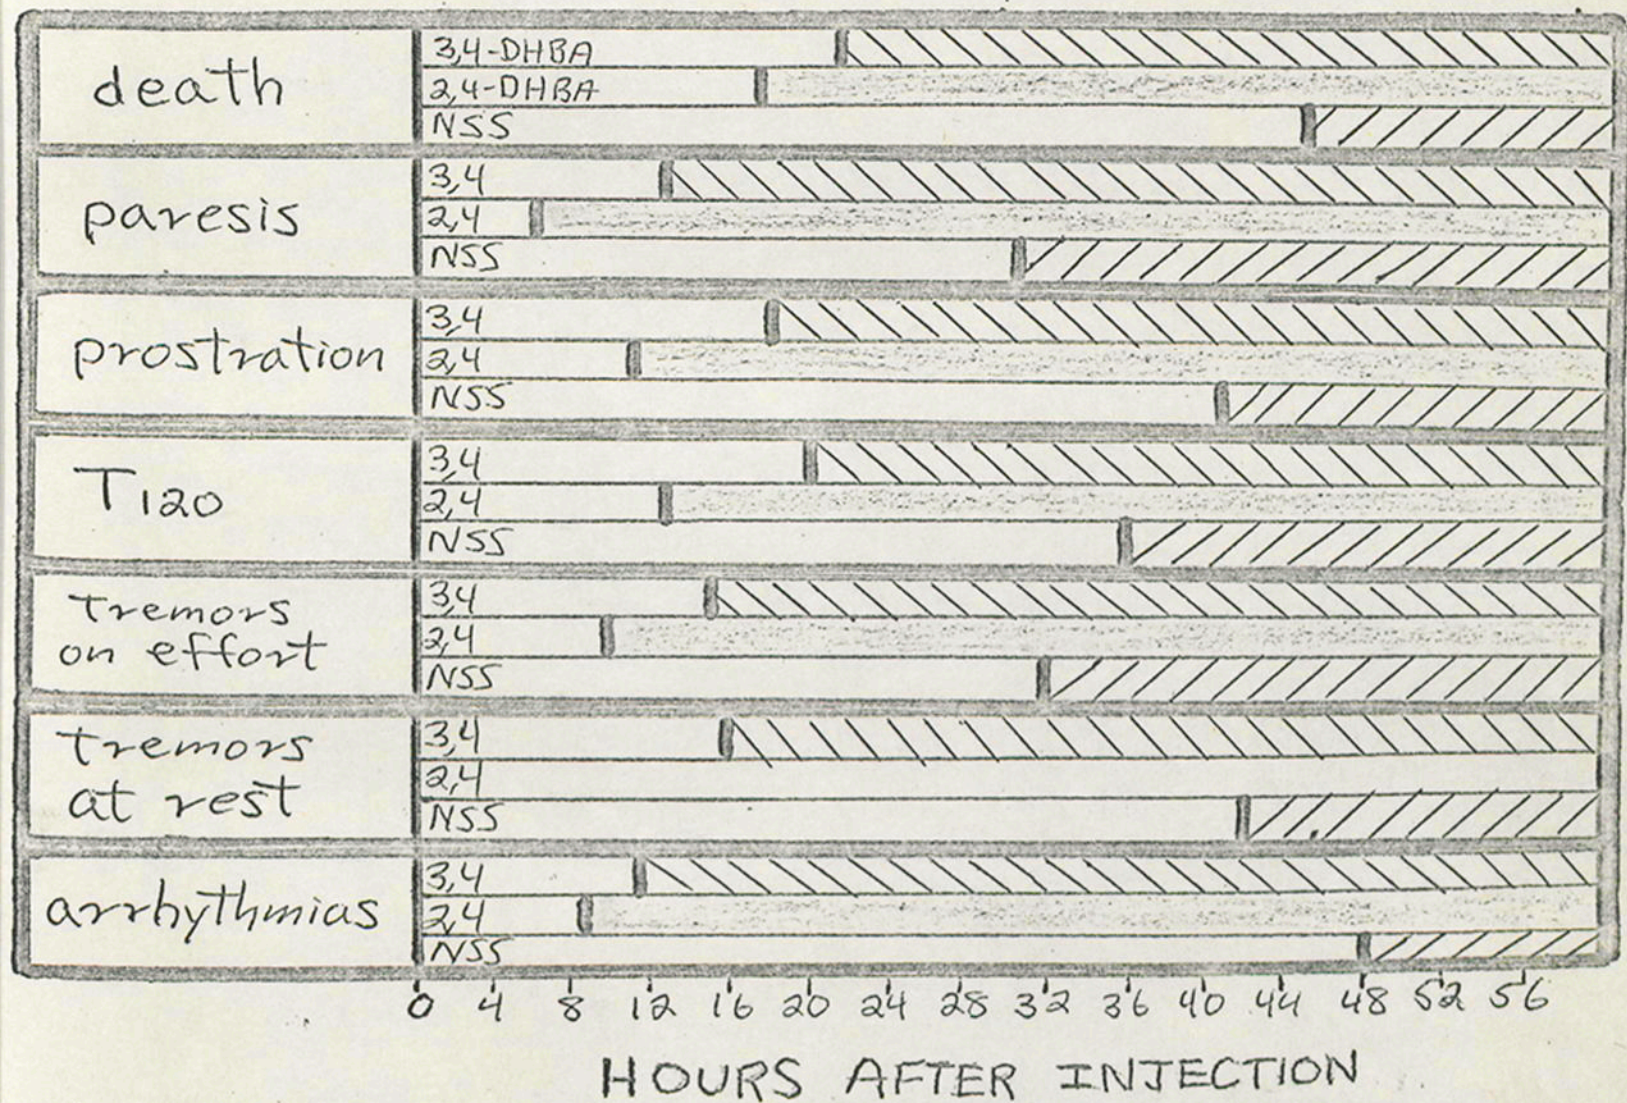 death
3,4-DHBA
2,4-DHBA
NSS
paresis
3,4
2,4
NSS
prostration
3,4
2,4
NSS
T120
3,4
2,4
NSS
Tremors
on effort
3,4
2,4
NSS
tremors
at rest
3,4
2,4
NSS
arrhythmias
3,4
2,4
NSS
0 4 8 12 16 20 24 28 32 36 40 44 48 52 56
HOURS AFTER INJECTION